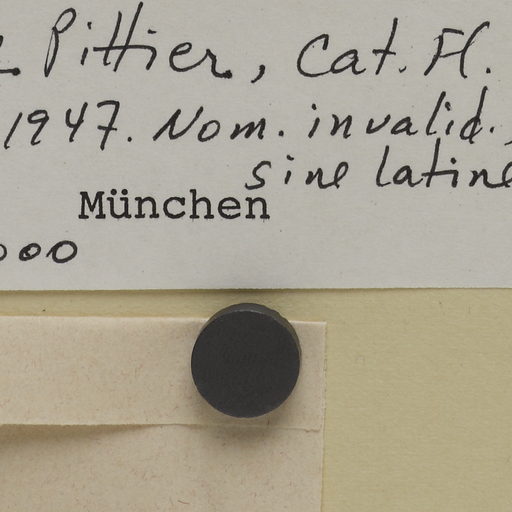 Pittier, Cat. Fl.
1947. Nom. invalid.,
sine latine
München
000